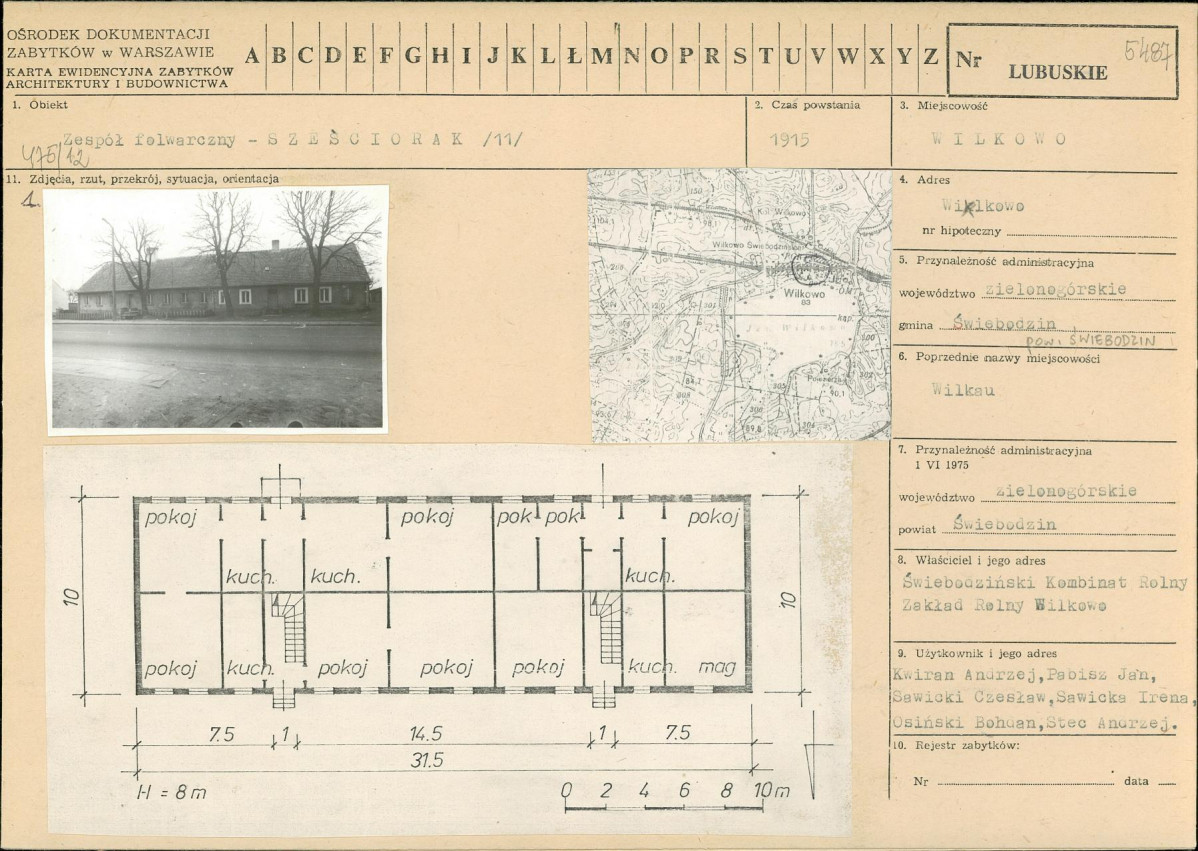 OŚRODEK DOKUMENTACJI
ZABYTKÓW w WARSZAWIE
KARTA EWIDENCYJNA ZABYTKÓW
ARCHITEKTURY I BUDOWNICTWA
A B C D E F G H I J K L Ł M N O P R S T U V W X Y Z
Nr
5487
LUBUSKIE
1. Obiekt
Zespół folwarczny - SZEŚCIORAK /11/
475/12
2. Czas powstania
1915
3. Miejscowość
WILKOWO
11. Zdjęcia, rzut, przekrój, sytuacja, orientacja
1.
Kol. Wilkowo
Wilkowo Świebodzińskie
Wilkowo
83
4. Adres
Wilkowo
nr hipoteczny
5. Przynależność administracyjna
województwo zielonogórskie
gmina Świebodzin
pow. ŚWIEBODZIN
6. Poprzednie nazwy miejscowości
Wilkau
7. Przynależność administracyjna
1 VI 1975
województwo zielonogórskie
powiat Świebodzin
8. Właściciel i jego adres
Świebodziński Kombinat Rolny
Zakład Rolny Wilkowo
9. Użytkownik i jego adres
Kwiran Andrzej, Pabisz Jan,
Sawicki Czesław, Sawicka Irena,
Osiński Bohdan, Stec Andrzej.
10. Rejestr zabytków:
Nr data
pokoj pokoj pok pok pokoj
kuch. kuch. kuch.
10 10
pokoj kuch. pokoj pokoj pokoj kuch. mag
7.5 1 14.5 1 7.5
31.5
H = 8m
0 2 4 6 8 10m